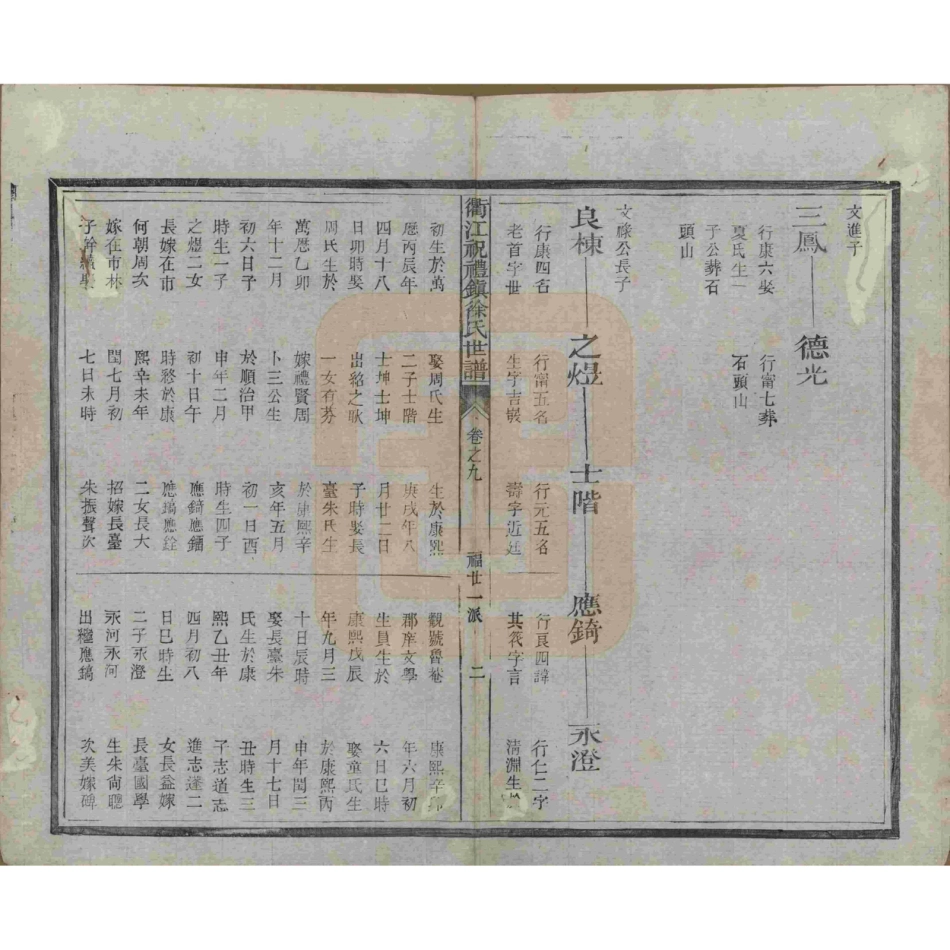 文進子
三鳳
德光
行康六娶
夏氏生一
子公葬石
頭山
行甯七葬
石頭山
文祿公長子
良棟
之煜
士階
應錡
永澄
行康四名
老首字世
行甯五名
生字吉
行元五名
壽字近廷
行良四諱
其
字言
行仁二字
清淵生
衢江祝禮鎮徐氏世譜
卷之九
福廿一派
二
初生於萬
歷丙辰年
四月十八
日卯時娶
周氏生於
萬歷乙卯
年十二月
初六日子
時生一子
之煜二女
長嫁在市
何朝周次
嫁在市林
子
娶周氏生
二子士階
士坤士坤
出紹之
一女有芬
嫁禮賢周
卜三公生
於順治甲
申年二月
初十日午
時愁於康
熙辛未年
閏七月初
七日未時
生於康熙
庚戌年八
月廿二日
子時娶長
臺朱氏生
於康熙辛
亥年五月
初一日酉
時生四子
應錡應鎦
應瑞應銓
二女長大
招嫁長臺
朱振聲次
觀號魯菴
郡庠文學
生員生於
康熙戊辰
年九月三
十日辰時
娶長臺朱
氏生於康
熙乙丑年
四月初八
日巳時生
二子永澄
永河永河
出繼應鎬
康熙辛卯
年六月初
六日巳時
娶童氏生
於康熙丙
申年閏三
月十七日
丑時生三
子志道志
進志遂二
女長益嫁
長臺國學
生朱尚聰
次美嫁碑